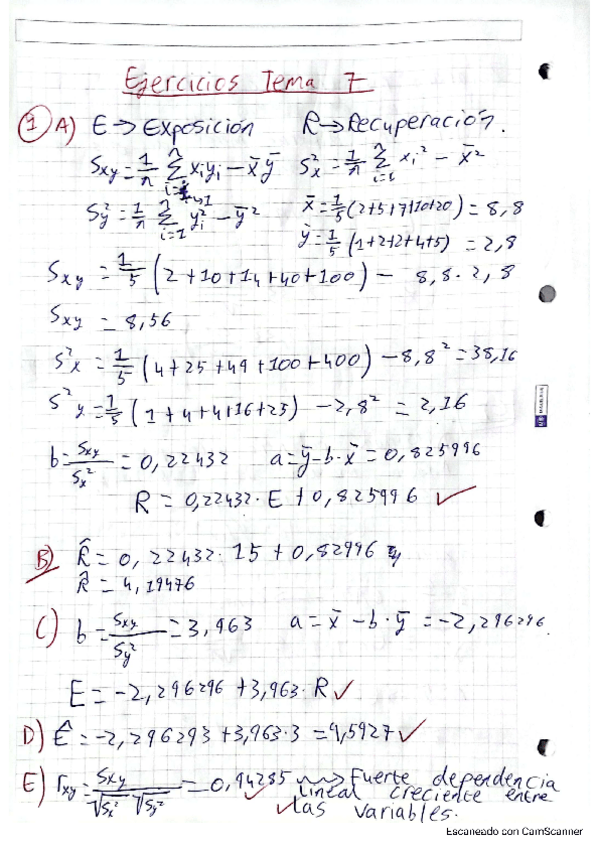 Ejercicios Tema 7
1 A) E → Exposición R → Recuperación.
Sxy = 1/n Σ i=1 n xiyi − x̄ȳ S²x = 1/n Σ i=1 n xi² − x̄²
S²y = 1/n Σ i=1 n yi² − ȳ² x̄ = 1/5 (2+5+7+10+20) = 8,8
ȳ = 1/5 (1+2+2+4+5) = 2,8
Sxy = 1/5 (2+10+14+40+100) − 8,8 · 2,8
Sxy = 8,56
S²x = 1/5 (4+25+49+100+400) − 8,8² = 38,16
S²y = 1/5 (1+4+4+16+25) − 2,8² = 2,16
b = Sxy/Sx² = 0,22432 a = ȳ − b · x̄ = 0,825996
R = 0,22432 · E + 0,825996 ✓
B) R̂ = 0,22432 · 15 + 0,82996
R̂ = 4,19476
C) b = Sxy/Sy² = 3,963 a = x̄ − b · ȳ = −2,296296.
E = −2,296296 + 3,963 · R ✓
D) Ê = −2,296293 + 3,963 · 3 = 9,5927 ✓
E) rxy = Sxy/√Sx² √Sy² = 0,94285 ⇝ Fuerte dependencia
lineal creciente entre
✓ las variables.
Escaneado con CamScanner